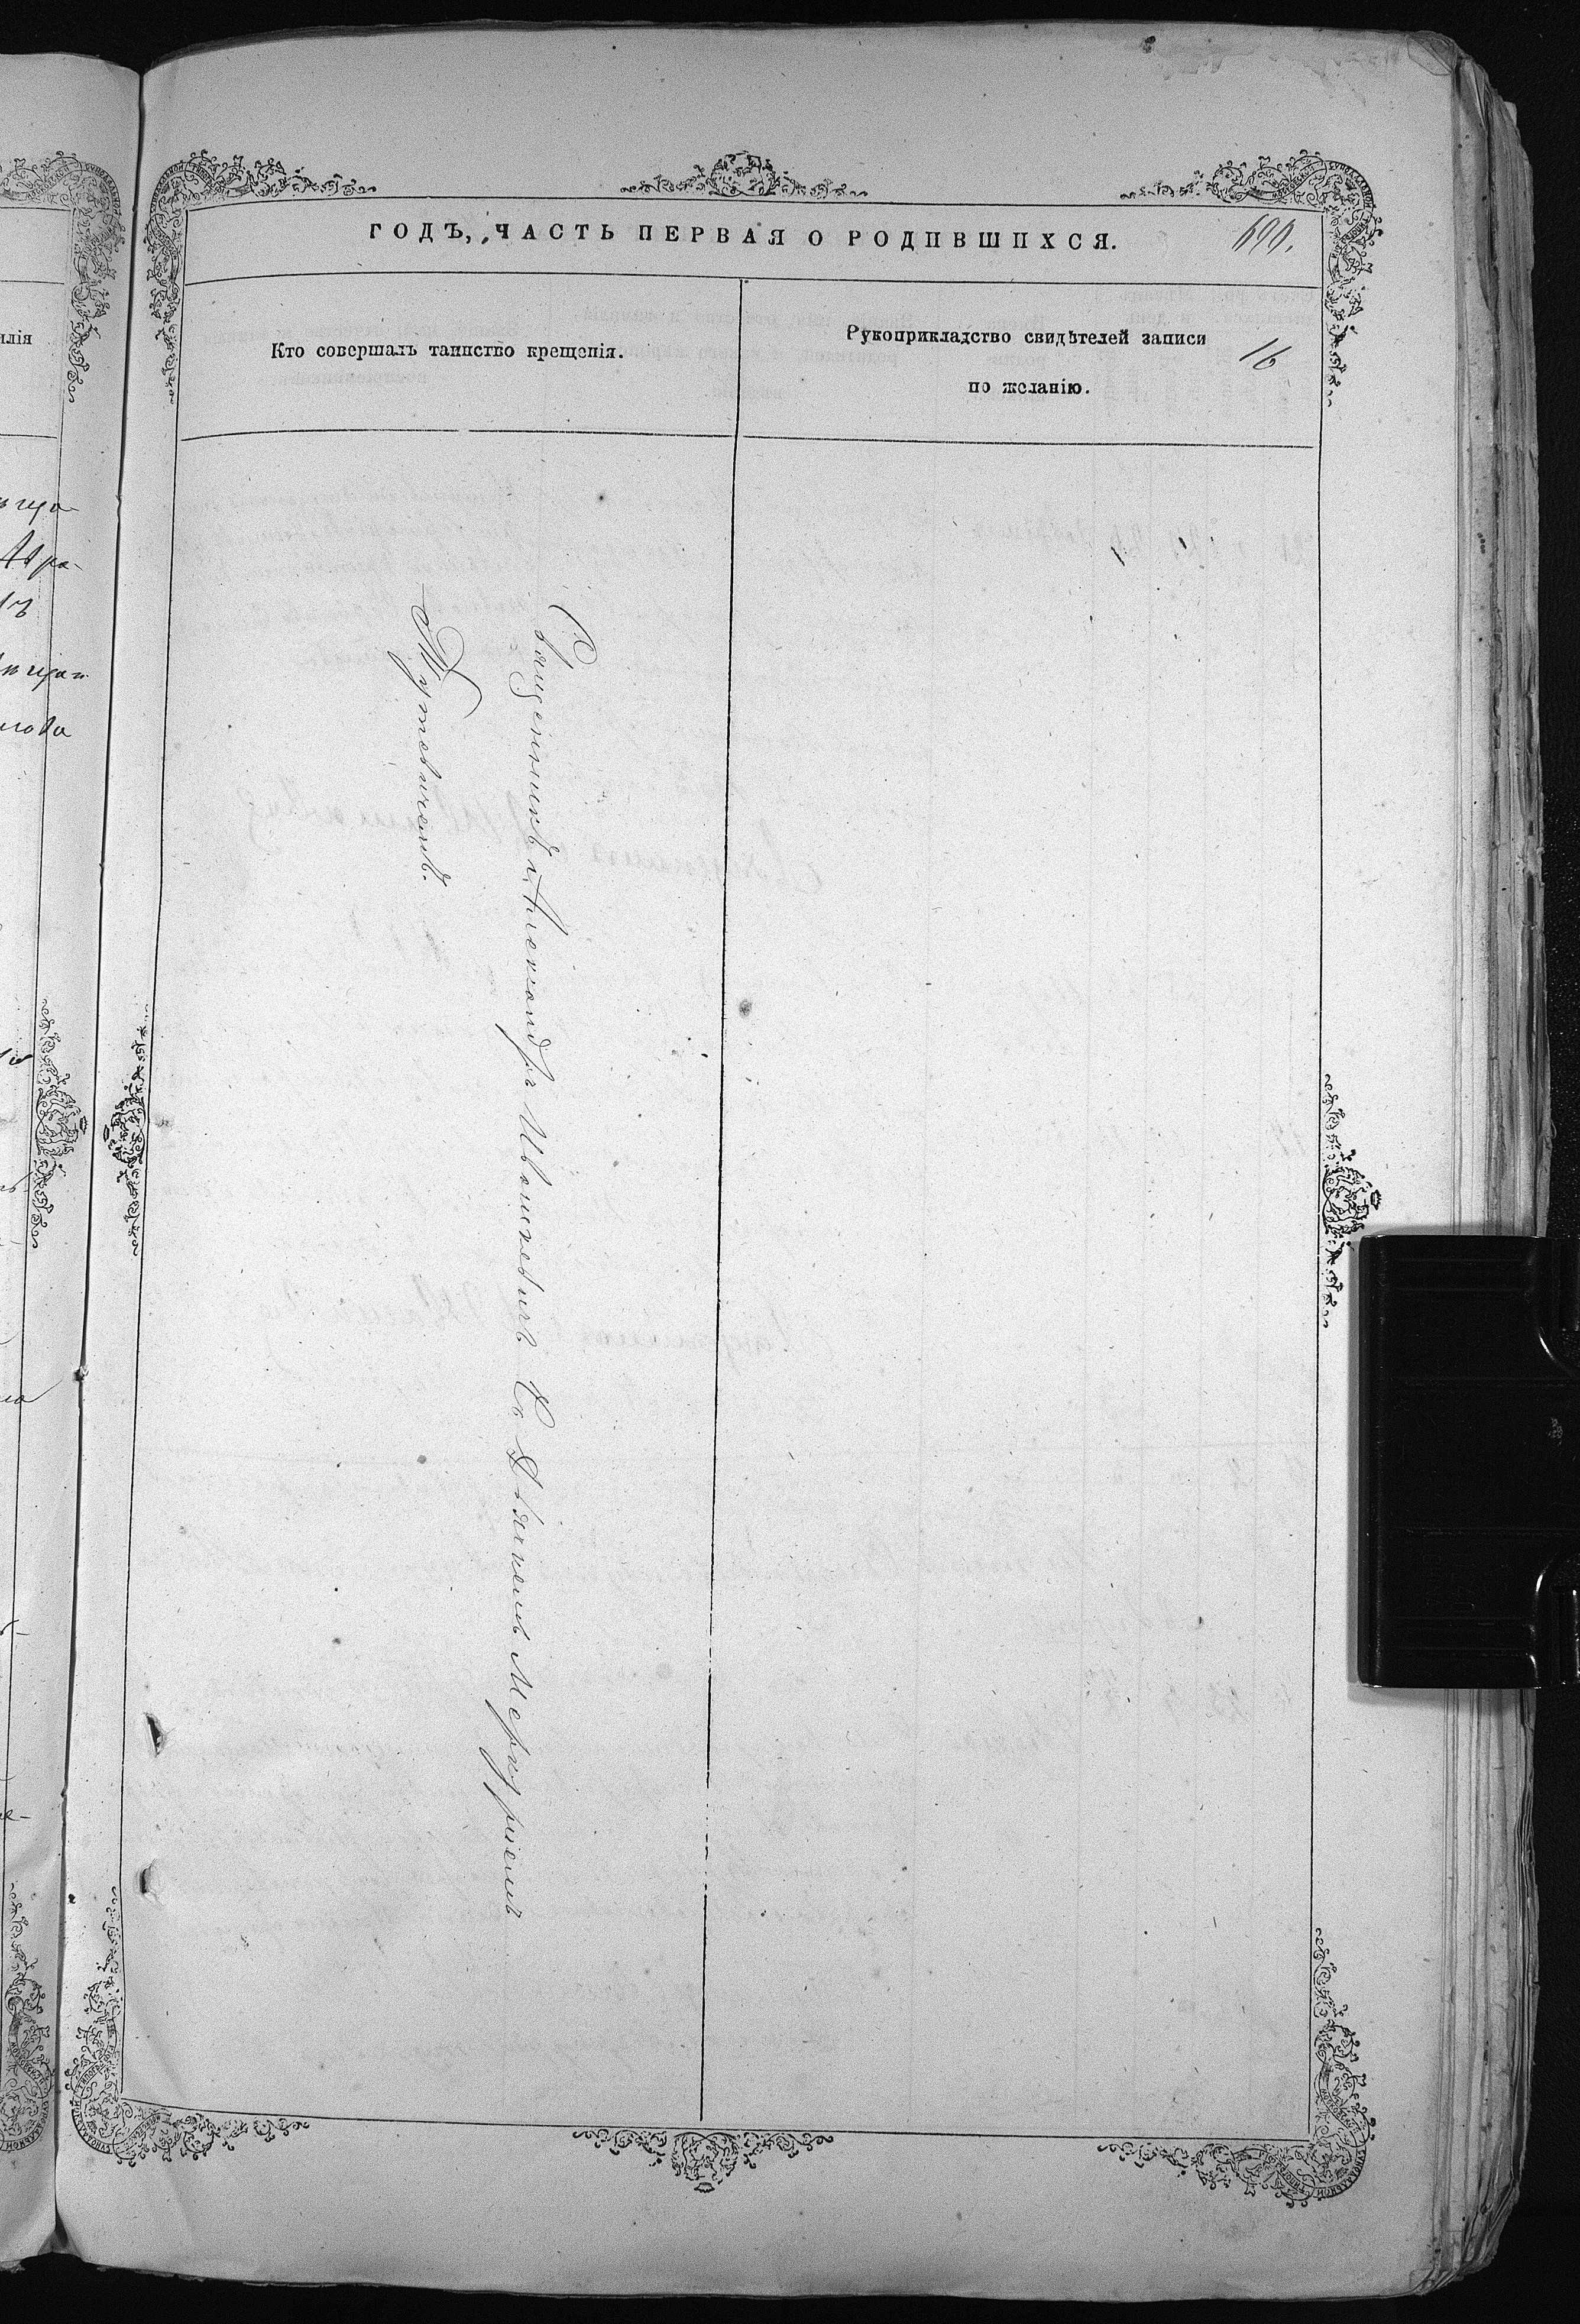 ГОДЪ, ЧАСТЬ ПЕРВАЯ О РОДИВШИХСЯ.
690.
Кто совершалъ таинство крещенія.
Рукоприкладство свидѣтелей записи
по желанію.
16
Священникъ Александръ Ивацевичъ Съ Дьякомъ Меркуріемъ
Жутовичемъ.
илія